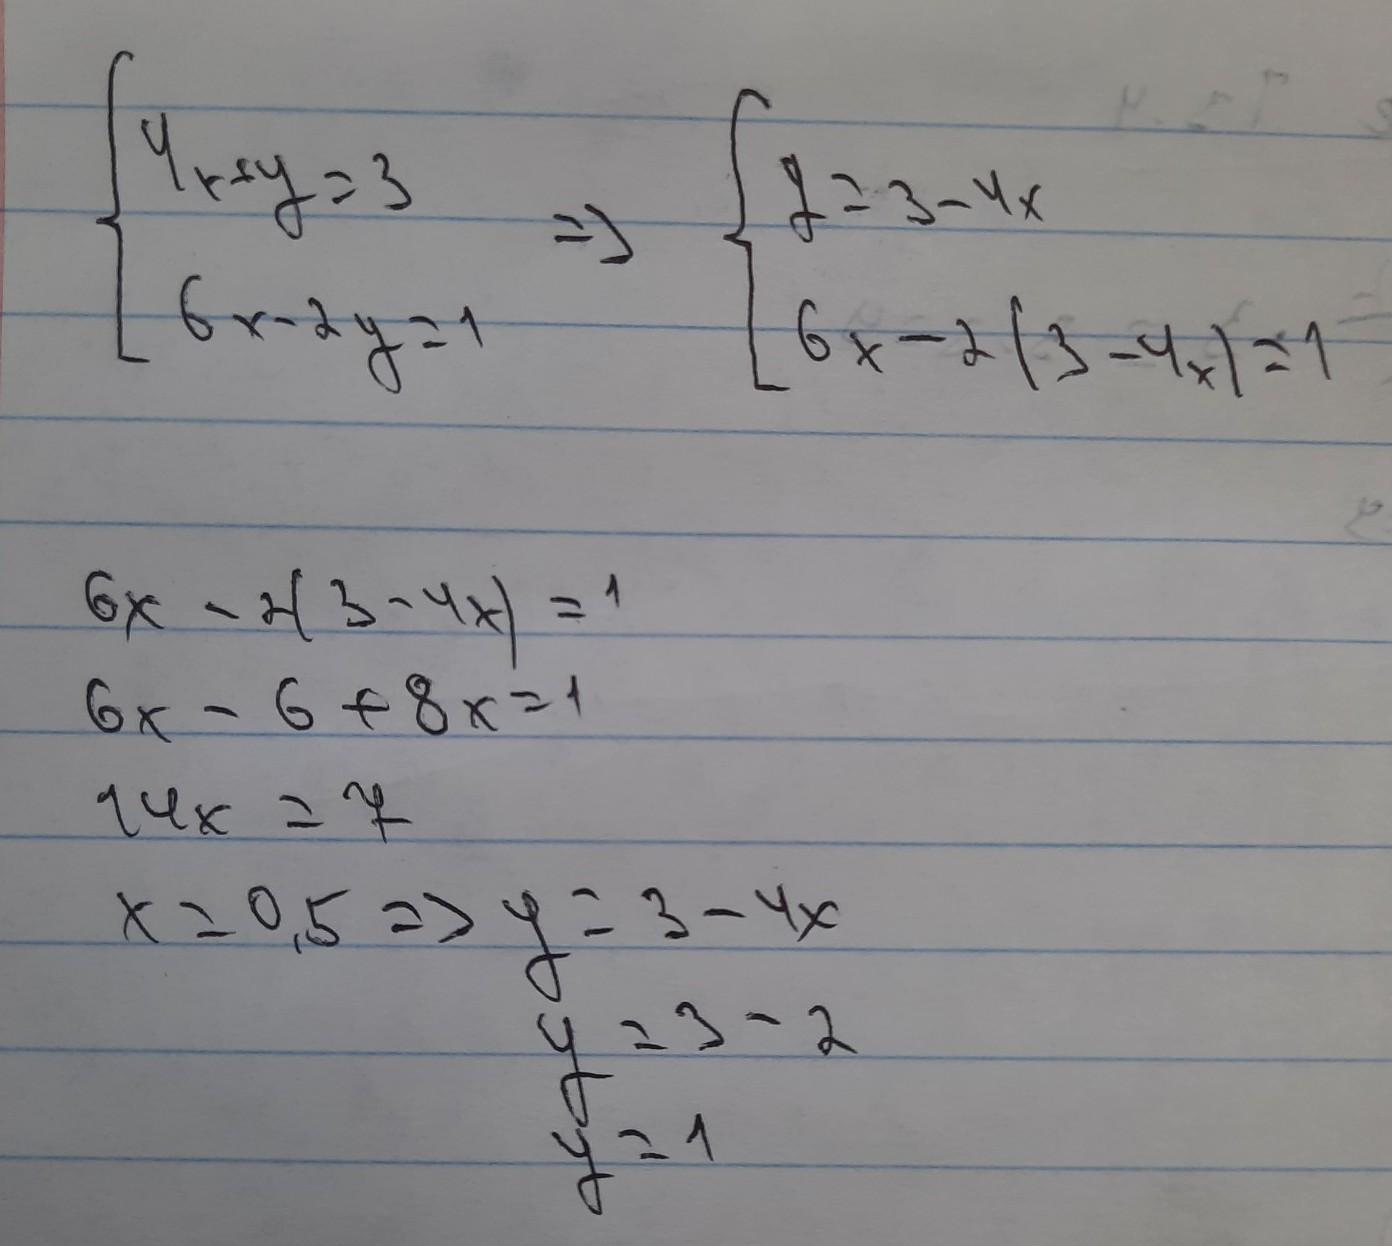 4x+y=3 => y=3-4x
6x-2y=1 6x-2(3-4x)=1
6x-2(3-4x)=1
6x-6+8x=1
14x=7
x=0,5=>y=3-4x
y=3-2
y=1